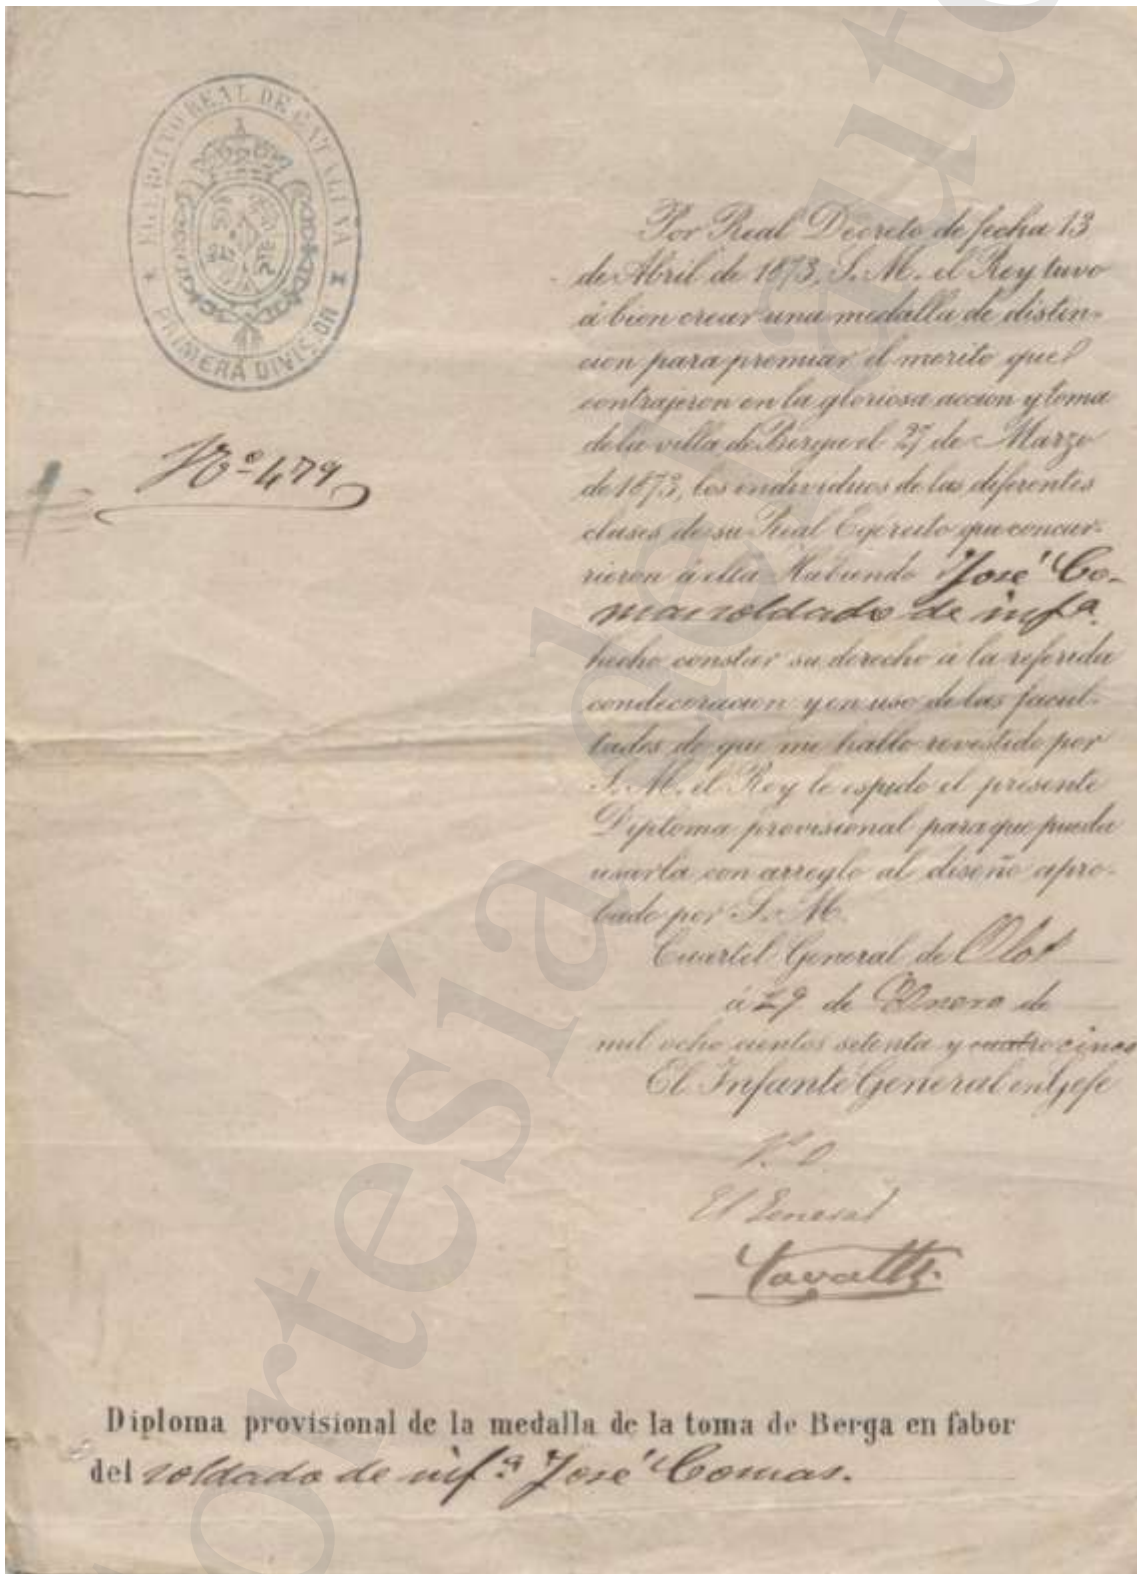 EGERCITO REAL DE CATALUÑA
PRIMERA DIVISION
Nº 479
Por Real Decreto de fecha 13
de Abril de 1873, S. M. el Rey tuvo
á bien crear una medalla de distin-
cion para premiar el merito que
contrajeron en la gloriosa accion y toma
de la villa de Berga el 27 de Marzo
de 1873, los individuos de las diferentes
clases de su Real Egército que concur-
rieron á ella Habiendo José Co-
mas soldado de infª
hecho constar su derecho á la referida
condecoracion y en uso de las facul-
tades de que me hallo revestido por
S. M. el Rey le espido el presente
Diploma provisional para que pueda
usarla con arreglo al diseño apro-
bado por S. M.
Cuartel General de Olot
á 29 de Enero de
mil ocho cientos setenta y cuatro cinco
El Infante General en Gefe
El General
Diploma provisional de la medalla de la toma de Berga en fabor
del soldado de infª José Comas.
cortesía del autor